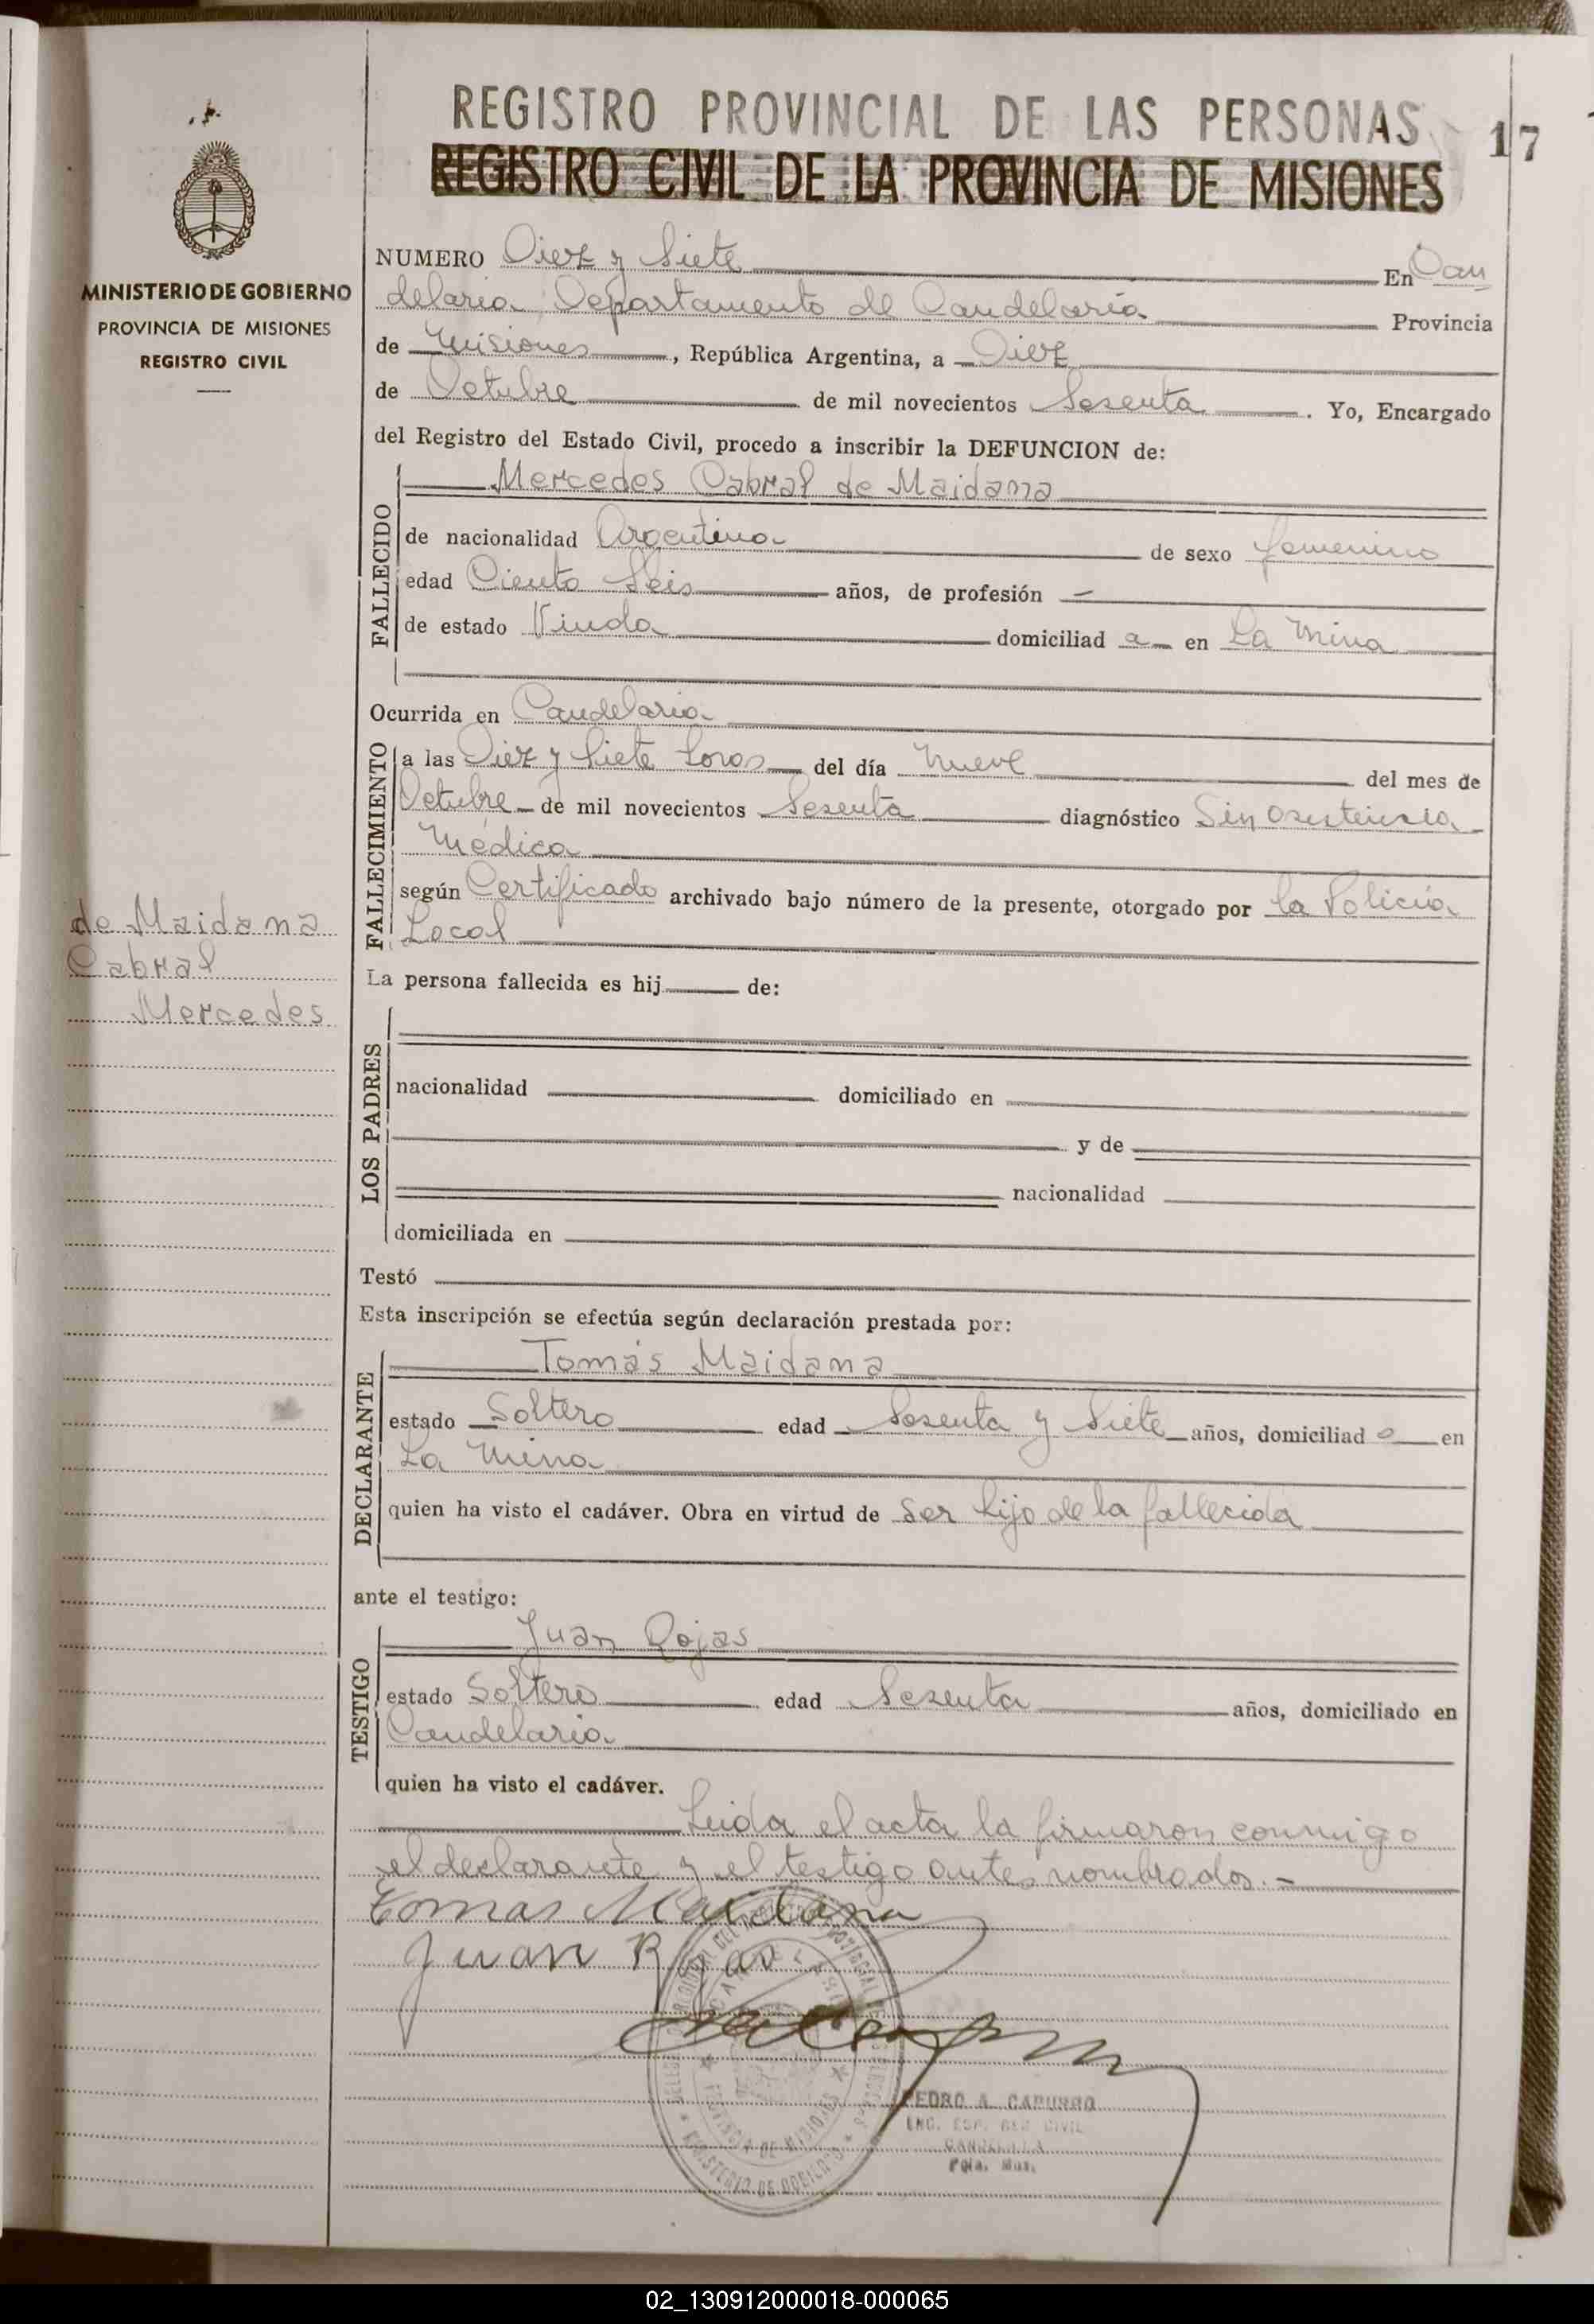 REGISTRO PROVINCIAL DE LAS PERSONAS
17
REGISTRO CIVIL DE LA PROVINCIA DE MISIONES
MINISTERIO DE GOBIERNO
PROVINCIA DE MISIONES
REGISTRO CIVIL
de Maidana
Cabral
Mercedes
NUMERO Diez y Siete En Can
delaria, Departamento de Candelaria Provincia
de Misiones, República Argentina, a Diez
de Octubre de mil novecientos Sesenta. Yo, Encargado
del Registro del Estado Civil, procedo a inscribir la DEFUNCION de:
FALLECIDO
Mercedes Cabral de Maidana
de nacionalidad Argentina de sexo femenino
edad Ciento Seis años, de profesión —
de estado Viuda domiciliad a en La Mina
Ocurrida en Candelaria
FALLECIMIENTO
a las Diez y Siete horas del día Nueve del mes de
Octubre de mil novecientos Sesenta diagnóstico Sin asistencia
Médica
según Certificado archivado bajo número de la presente, otorgado por la Policía
Local
La persona fallecida es hij de:
LOS PADRES
nacionalidad domiciliado en
y de
nacionalidad
domiciliada en
Testó
Esta inscripción se efectúa según declaración prestada por:
DECLARANTE
Tomás Maidana
estado Soltero edad Sesenta y Siete años, domiciliad o en
La Mina
quien ha visto el cadáver. Obra en virtud de Ser hijo de la fallecida
ante el testigo:
TESTIGO
Juan Rojas
estado Soltero edad Sesenta años, domiciliado en
Candelaria
quien ha visto el cadáver.
Leida el acta la firmaron conmigo
el declarante y el testigo antes nombrados.-
Tomas Maidana
Juan Rojas
PEDRO A. CAPURRO
ENC. ESP. REG CIVIL
CANDELARIA
Pcia. Mns.
PROVINCIA DE MISIONES
MINISTERIO DE GOBIERNO
02_130912000018-000065